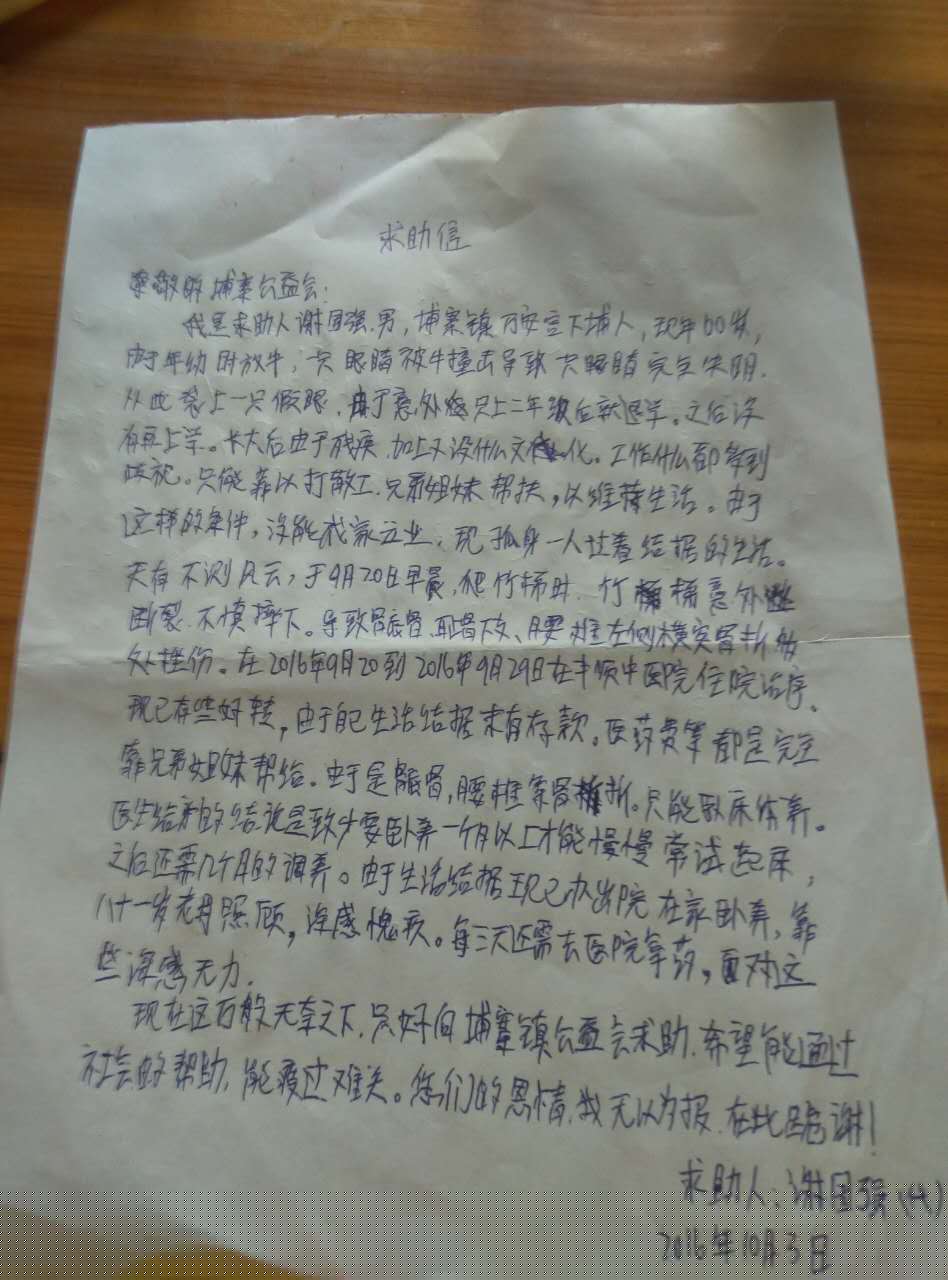 求助信
尊敬的埔寨公益会:
我是求助人谢国强.男,埔寨镇万安宫下埔人,现年60岁,
由于年幼时放牛,一只眼睛被牛撞击导致一只眼睛完全失明.
从此装上一只假眼.由于意外终只上二年级后就退学。之后没
有再上学。长大后由于残疾.加上又没什么文化。工作什么都等到
歧视。只能靠以打散工.兄弟姐妹帮扶,以维持生活。由于
这样的条件,没能成家立业,现孤身一人过着结据的生活。
天有不测风云,于9月20日早晨,爬竹梯时.竹梯意外
断裂.不慎摔下。导致骶骨.耻骨下支、腰椎左侧横突骨折多
处挫伤。在2016年9月20到2016年9月29日在丰顺中医院住院治疗.
现已有些好转,由于自己生活结据未有存款。医药费等都是完全
靠兄弟姐妹帮给。由于是骶骨,腰椎等骨折。只能卧床休养。
医生给的结论是致少要卧养一个月以上才能慢慢常试起床,
之后还需几个月的调养。由于生活结据现已办出院在家卧养,靠
八十一岁老母照顾,深感愧疚。每三天还需去医院拿药,面对这
些深感无力.
现在这万般无奈之下.只好向埔寨镇公益会求助.希望能通过
社会的帮助,能渡过难关。您们的恩情.我无以为报.在此跪谢!
求助人:谢国强(代)
2016年10月3日